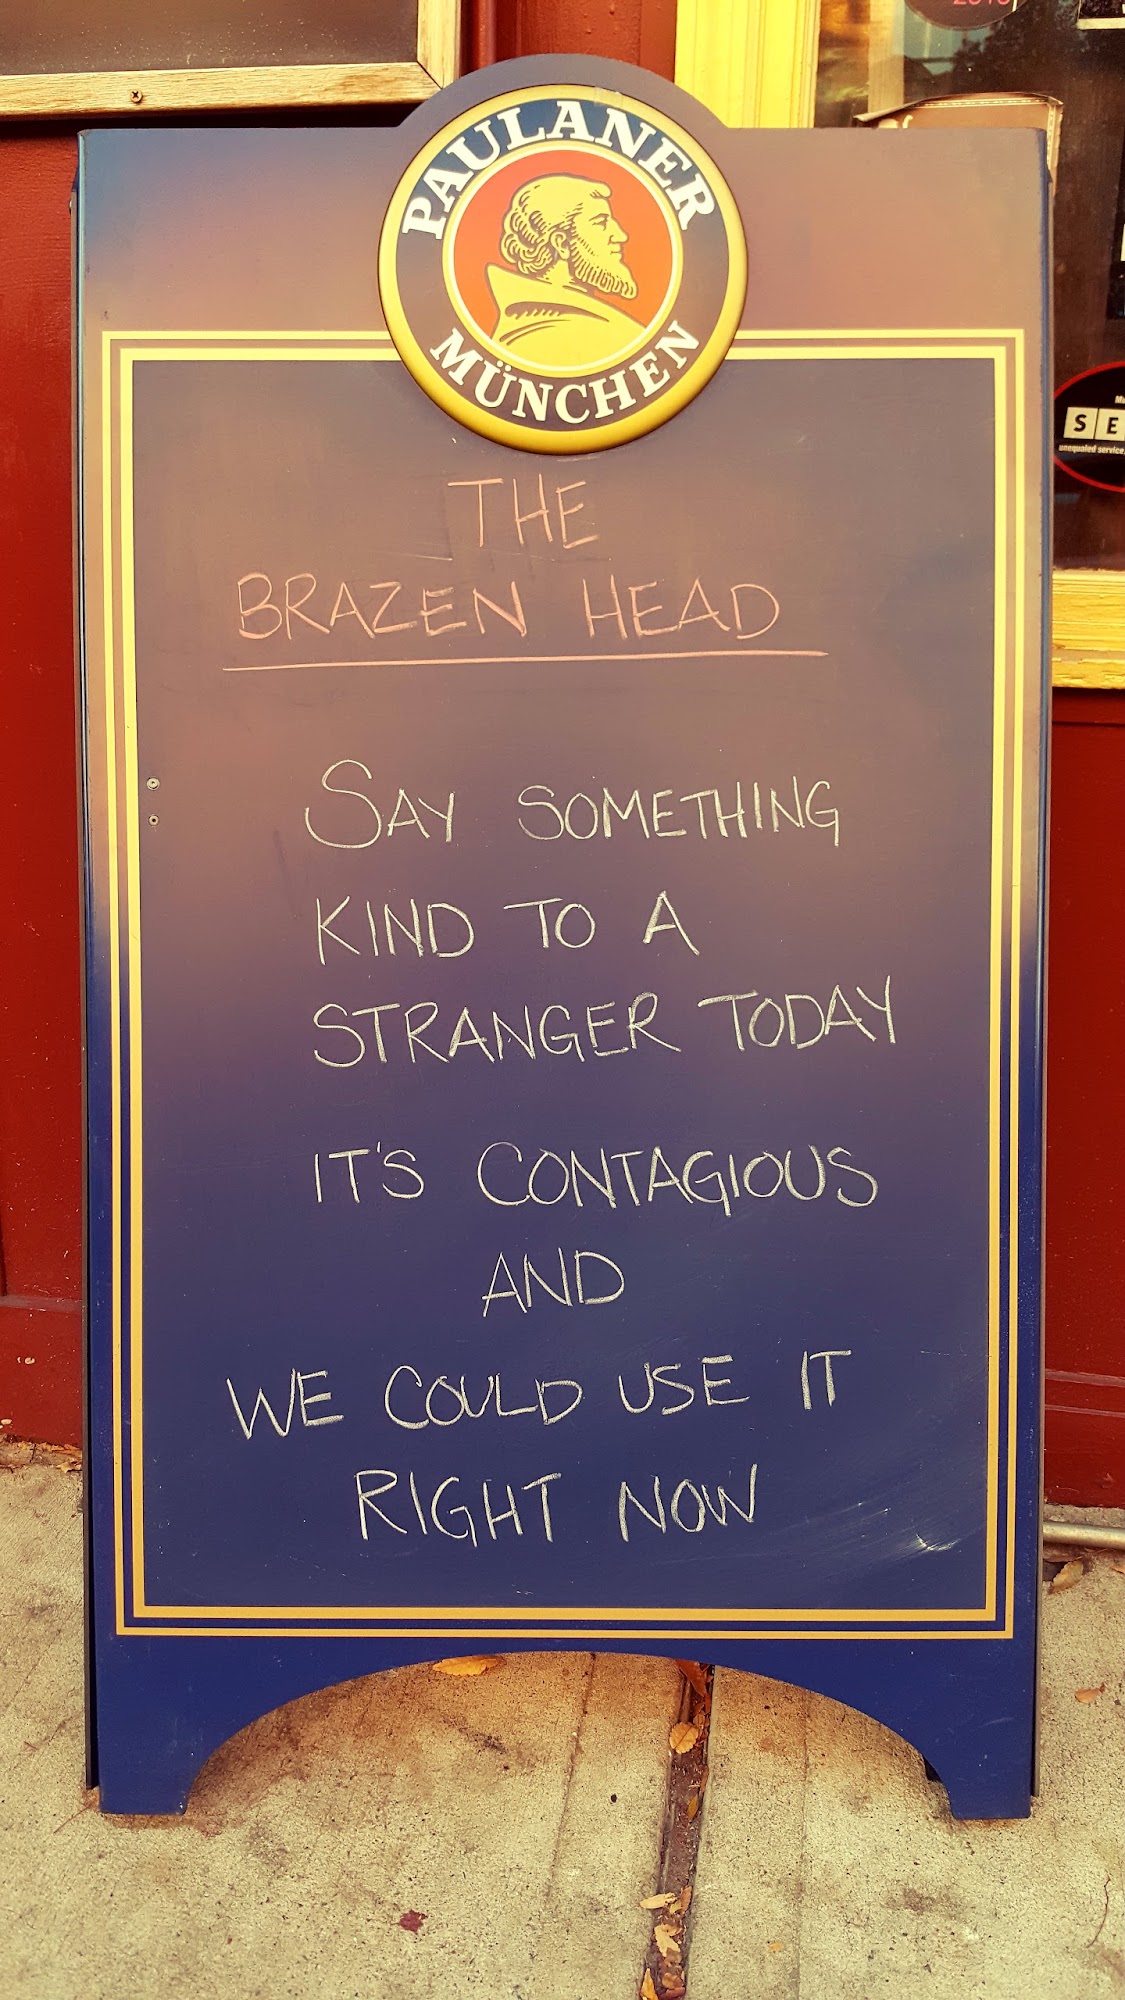 PAULANER
MÜNCHEN
THE
BRAZEN HEAD
SAY SOMETHING
KIND TO A
STRANGER TODAY
IT'S CONTAGIOUS
AND
WE COULD USE IT
RIGHT NOW
SE
unequaled service,